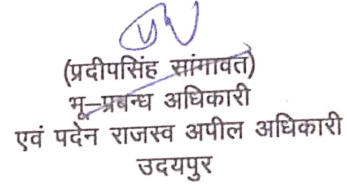 (प्रदीपसिंह सांगावत)
भू–प्रबन्ध अधिकारी
एवं पदेन राजस्व अपील अधिकारी
उदयपुर